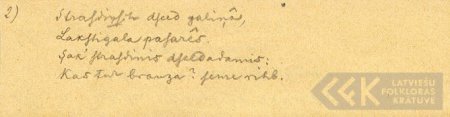 2) Strasdiņsch dseed galiņâ,
Lakstigala pasarês.
Sak' strasdinis dseldadamis:
Kas tur brauza? seme rihb.
LATVIEŠU
FOLKLORAS
KRĀTUVE